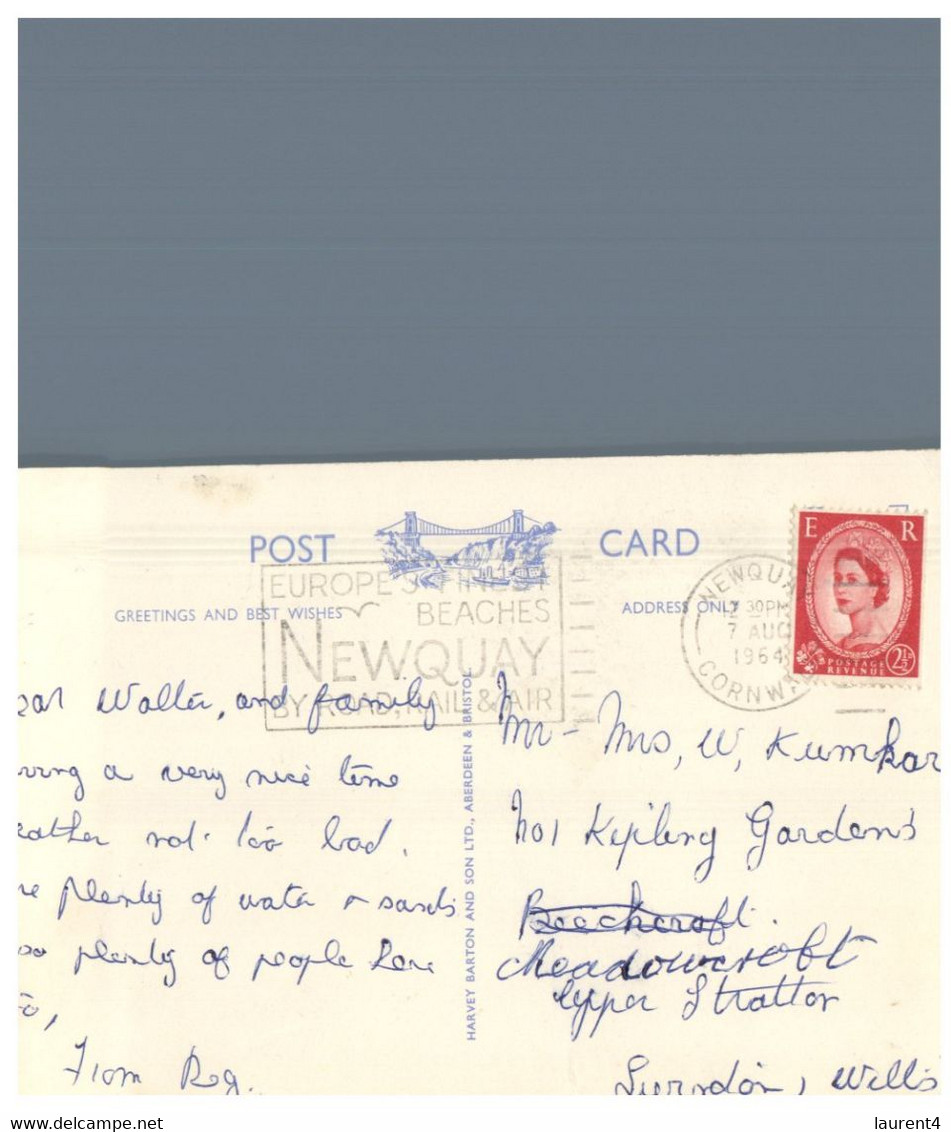 POST CARD
GREETINGS AND BEST WISHES
ADDRESS ONLY
EUROPE'S FINEST
BEACHES
NEWQUAY
BY ROAD, RAIL & AIR
NEWQUAY
12 30PM
7 AUG
1964
CORNWALL
E R
POSTAGE
REVENUE
2½D
ear Walter, and family
aving a very nice time
eather not too bad.
re plenty of water & sands
so plenty of people here
to,
From Reg.
HARVEY BARTON AND SON LTD., ABERDEEN & BRISTOL
Mr - Mrs, W, Kumkar
No 1 Kipling Gardens
Beechcroft.
Meadowcroft
Upper Stratton
Swindon, Wilts
© delcampe.net
laurent4